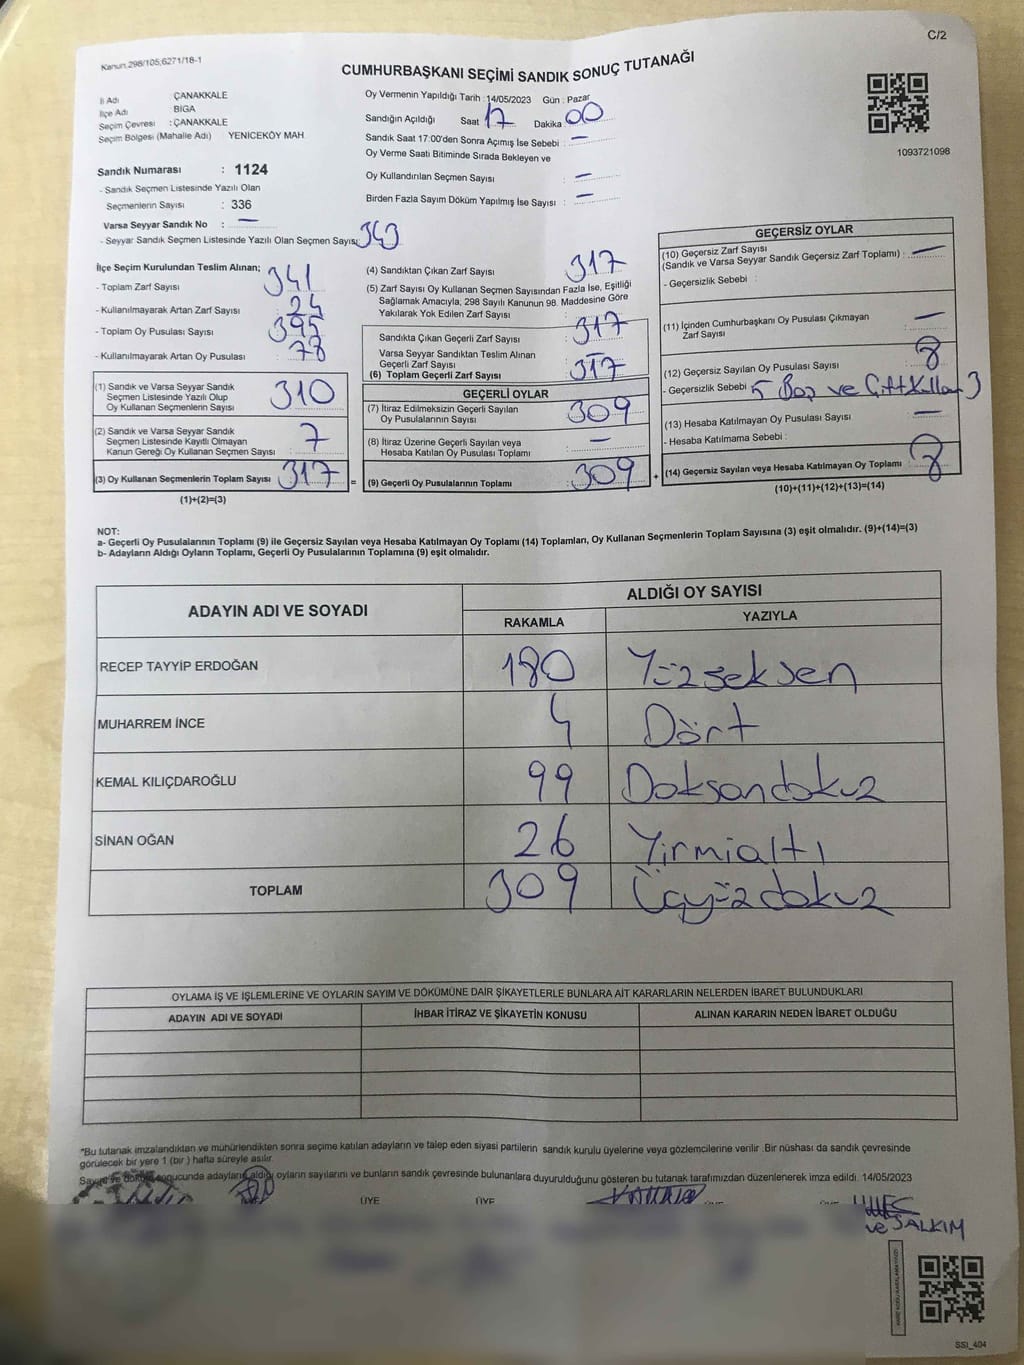 C/2
Kanun,298/105;6271/18-1
CUMHURBAŞKANI SEÇİMİ SANDIK SONUÇ TUTANAĞI
İl Adı : ÇANAKKALE
İlçe Adı : BİGA
Seçim Çevresi : ÇANAKKALE
Seçim Bölgesi (Mahalle Adı) YENİCEKÖY MAH
Oy Vermenin Yapıldığı Tarih : 14/05/2023 Gün : Pazar
Sandığın Açıldığı Saat 17 Dakika 00
Sandık Saat 17:00'den Sonra Açımış İse Sebebi : —
Oy Verme Saati Bitiminde Sırada Bekleyen ve
Oy Kullandırılan Seçmen Sayısı : —
Birden Fazla Sayım Döküm Yapılmış İse Sayısı : —
1093721098
Sandık Numarası : 1124
- Sandık Seçmen Listesinde Yazılı Olan
Seçmenlerin Sayısı : 336
Varsa Seyyar Sandık No : —
- Seyyar Sandık Seçmen Listesinde Yazılı Olan Seçmen Sayısı: 343
İlçe Seçim Kurulundan Teslim Alınan;
- Toplam Zarf Sayısı : 341
- Kullanılmayarak Artan Zarf Sayısı : 24
- Toplam Oy Pusulası Sayısı : 395
- Kullanılmayarak Artan Oy Pusulası : 78
(1) Sandık ve Varsa Seyyar Sandık
Seçmen Listesinde Yazılı Olup
Oy Kullanan Seçmenlerin Sayısı : 310
(2) Sandık ve Varsa Seyyar Sandık
Seçmen Listesinde Kayıtlı Olmayan
Kanun Gereği Oy Kullanan Seçmen Sayısı : 7
(3) Oy Kullanan Seçmenlerin Toplam Sayısı : 317
(1)+(2)=(3)
(4) Sandıktan Çıkan Zarf Sayısı : 317
(5) Zarf Sayısı Oy Kullanan Seçmen Sayısından Fazla İse, Eşitliği
Sağlamak Amacıyla, 298 Sayılı Kanunun 98. Maddesine Göre
Yakılarak Yok Edilen Zarf Sayısı :
Sandıkta Çıkan Geçerli Zarf Sayısı : 317
Varsa Seyyar Sandıktan Teslim Alınan
Geçerli Zarf Sayısı : —
(6) Toplam Geçerli Zarf Sayısı : 317
GEÇERLİ OYLAR
(7) İtiraz Edilmeksizin Geçerli Sayılan
Oy Pusulalarının Sayısı : 309
(8) İtiraz Üzerine Geçerli Sayılan veya
Hesaba Katılan Oy Pusulası Toplamı : —
= (9) Geçerli Oy Pusulalarının Toplamı : 309 +
GEÇERSİZ OYLAR
(10) Geçersiz Zarf Sayısı
(Sandık ve Varsa Seyyar Sandık Geçersiz Zarf Toplamı) : —
- Geçersizlik Sebebi :
(11) İçinden Cumhurbaşkanı Oy Pusulası Çıkmayan
Zarf Sayısı : —
(12) Geçersiz Sayılan Oy Pusulası Sayısı : 8
- Geçersizlik Sebebi : 5 Boş ve Çift Kullan 3
(13) Hesaba Katılmayan Oy Pusulası Sayısı : —
- Hesaba Katılmama Sebebi :
(14) Geçersiz Sayılan veya Hesaba Katılmayan Oy Toplamı : 8
(10)+(11)+(12)+(13)=(14)
NOT:
a- Geçerli Oy Pusulalarının Toplamı (9) ile Geçersiz Sayılan veya Hesaba Katılmayan Oy Toplamı (14) Toplamları, Oy Kullanan Seçmenlerin Toplam Sayısına (3) eşit olmalıdır. (9)+(14)=(3)
b- Adayların Aldığı Oyların Toplamı, Geçerli Oy Pusulalarının Toplamına (9) eşit olmalıdır.
ADAYIN ADI VE SOYADI ALDIĞI OY SAYISI
RAKAMLA YAZIYLA
RECEP TAYYİP ERDOĞAN 180 Yüzseksen
MUHARREM İNCE 4 Dört
KEMAL KILIÇDAROĞLU 99 Doksandokuz
SİNAN OĞAN 26 Yirmialtı
TOPLAM 309 Üçyüzdokuz
OYLAMA İŞ VE İŞLEMLERİNE VE OYLARIN SAYIM VE DÖKÜMÜNE DAİR ŞİKAYETLERLE BUNLARA AİT KARARLARIN NELERDEN İBARET BULUNDUKLARI
ADAYIN ADI VE SOYADI İHBAR İTİRAZ VE ŞİKAYETİN KONUSU ALINAN KARARIN NEDEN İBARET OLDUĞU
*Bu tutanak imzalandıktan ve mühürlendikten sonra seçime katılan adayların ve talep eden siyasi partilerin sandık kurulu üyelerine veya gözlemcilerine verilir .Bir nüshası da sandık çevresinde
görülecek bir yere 1 (bir ) hafta süreyle asılır.
Sayım ve döküm sonucunda adayların aldığı oyların sayılarını ve bunların sandık çevresinde bulunanlara duyurulduğunu gösteren bu tutanak tarafımızdan düzenlenerek imza edildi. 14/05/2023
ÜYE ÜYE
ve SALKIM
SSI_404